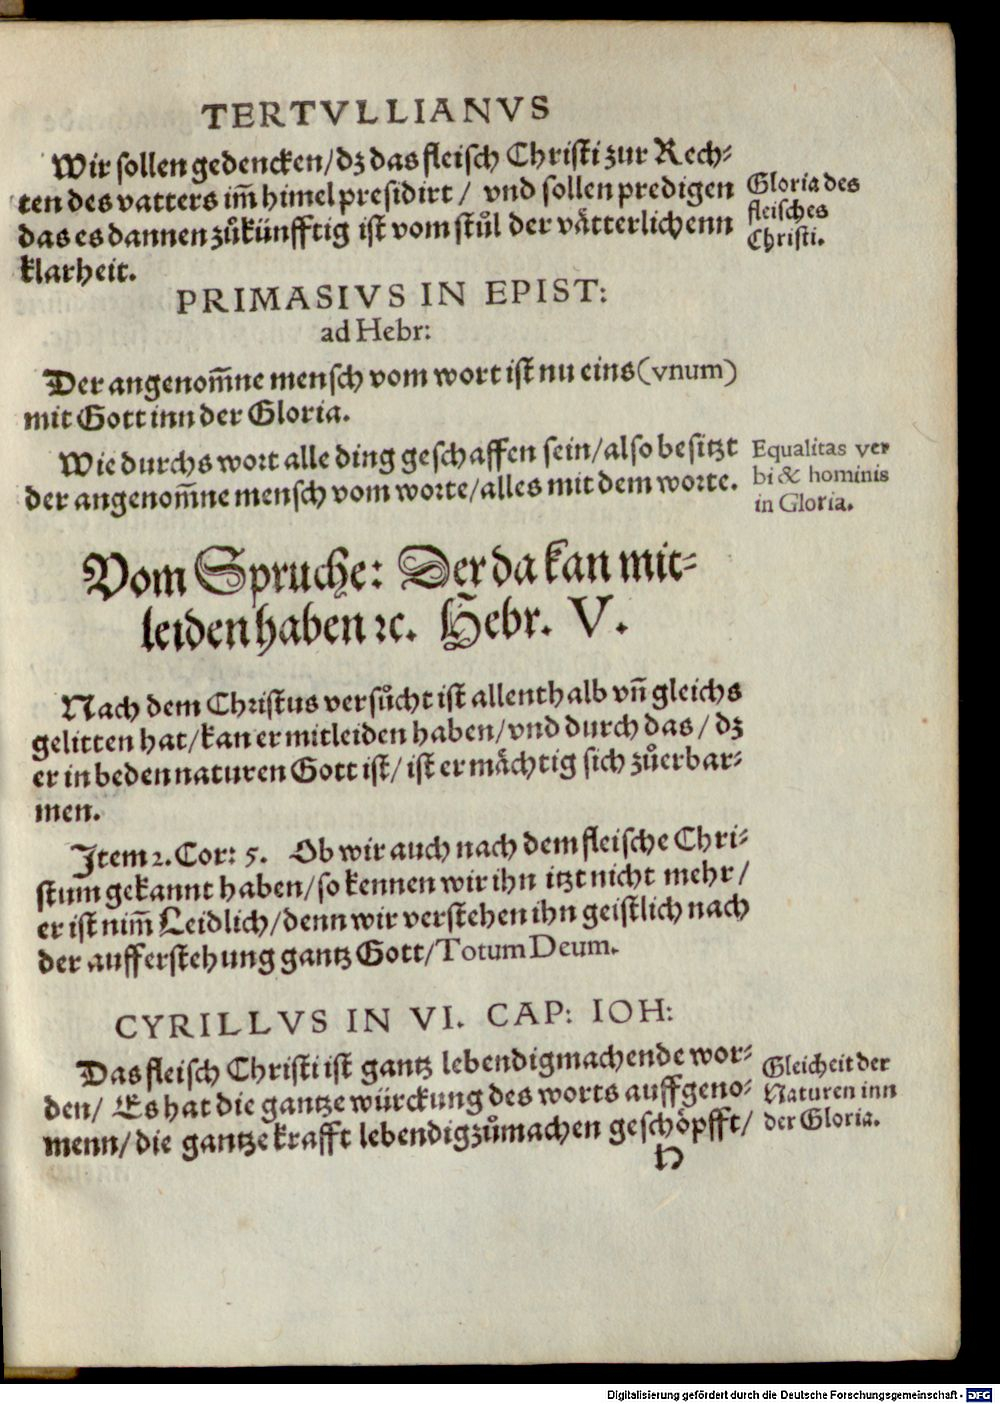 TERTVLLIANVS
Wir sollen gedencken/dz das fleisch Christi zur Rech-
ten des vatters im̃ himel presidirt / vnd sollen predigen
das es dannen zůkünfftig ist vom stůl der vätterlichenn
klarheit.
Gloria des
fleisches
Christi.
PRIMASIVS IN EPIST:
ad Hebr:
Der angenom̃ne mensch vom wort ist nu eins (vnum)
mit Gott inn der Gloria.
Wie durchs wort alle ding geschaffen sein/also besitzt
der angenom̃ne mensch vom worte/alles mit dem worte.
Equalitas ver
bi & hominis
in Gloria.
Vom Spruche: Der da kan mit-
leiden haben ꝛc. Hebr. V.
Nach dem Christus versůcht ist allenthalb vñ gleichs
gelitten hat/kan er mitleiden haben/vnd durch das / dz
er in beden naturen Gott ist/ ist er mächtig sich zůerbar-
men.
Item 2. Cor: 5. Ob wir auch nach dem fleische Chri-
stum gekannt haben/so kennen wir ihn itzt nicht mehr/
er ist nim̃ Leidlich/denn wir verstehen ihn geistlich nach
der aufferstehung gantz Gott/Totum Deum.
CYRILLVS IN VI. CAP: IOH:
Das fleisch Christi ist gantz lebendigmachende wor-
den/ Es hat die gantze würckung des worts auffgeno-
menn/die gantze krafft lebendigzůmachen geschöpfft/
Gleicheit der
Naturen inn
der Gloria.
Digitalisierung gefördert durch die Deutsche Forschungsgemeinschaft - DFG